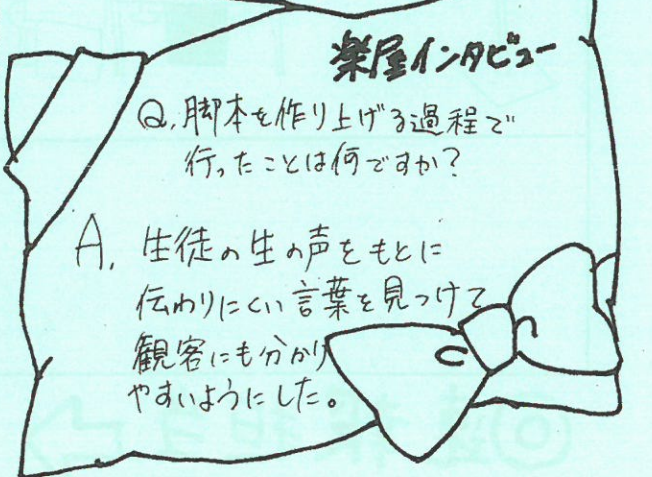 楽屋インタビュー
Q. 脚本を作り上げる過程で
行ったことは何ですか?
A. 生徒の生の声をもとに
伝わりにくい言葉を見つけて
観客にも分かり
やすいようにした。